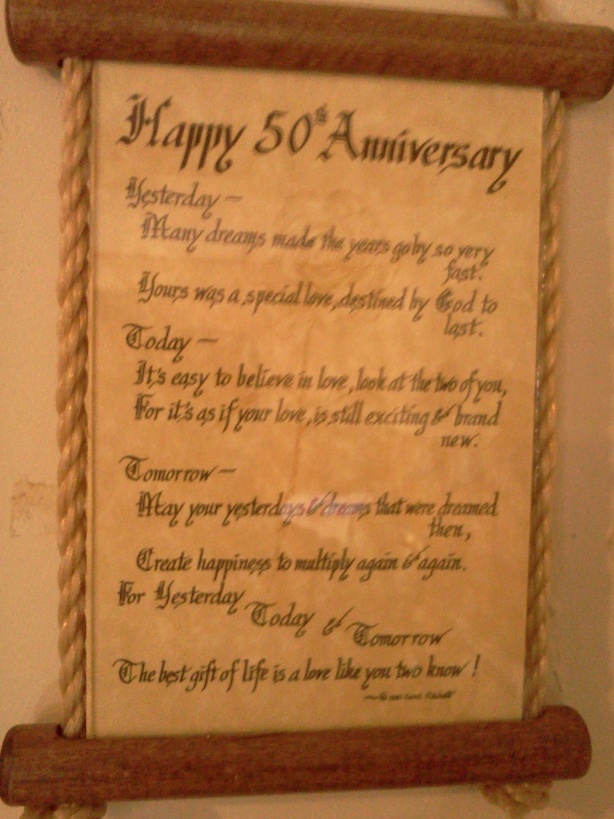 Happy 50th Anniversary
Yesterday —
Many dreams made the years go by so very
fast.
Yours was a special love, destined by God to
last.
Today —
It's easy to believe in love, look at the two of you,
For it's as if your love, is still exciting & brand
new.
Tomorrow —
May your yesterdays & dreams that were dreamed
then,
Create happiness to multiply again & again.
For Yesterday
Today &
Tomorrow
The best gift of life is a love like you two know!